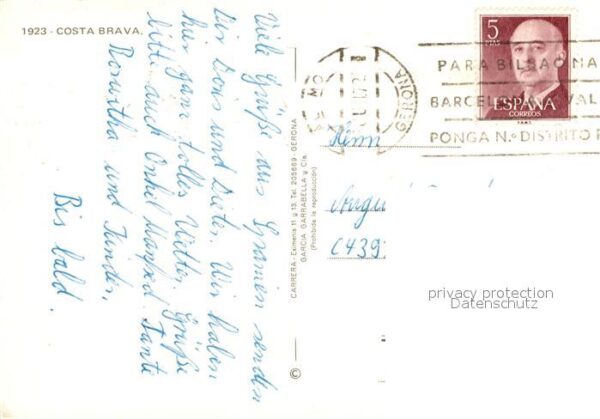 1923 - COSTA BRAVA.
Viele Grüße aus Spanien senden
Dir Doris und Dieter. Wir haben
hier ganz tolles Wetter. Grüße
bitte auch Onkel Manfred, Tante
Roswitha und Kinder.
Bis bald.
CARRERA - Eximenis 11 y 13. Tel. 205669 - GERONA
GARCIA GARRABELLA y Cía.
(Prohibida la reproducción)
©
GERONA
5
PTAS
ESPAÑA
CORREOS
F.N.M.T.
PARA BILBAO NA
BARCEL VAL
PONGA N.º DISTRITO P
privacy protection
Datenschutz